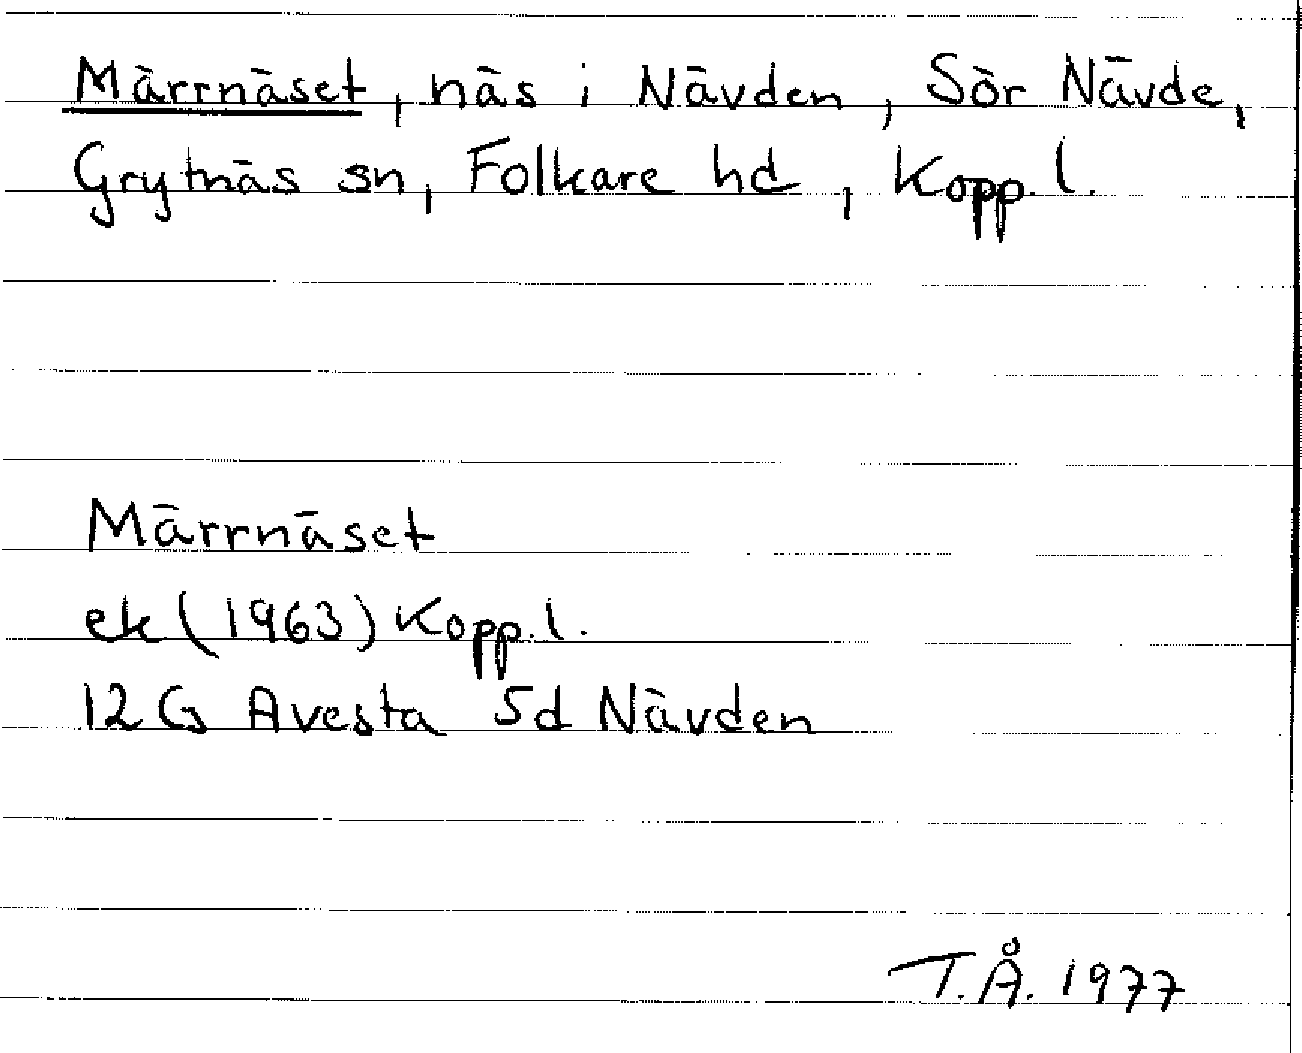 Märrnäset, näs i Nävden, Sör Nävde,
Grytnäs sn, Folkare hd, Kopp. l.
Märrnäset
ek (1963) Kopp. l.
12 G Avesta 5d Nävden
T.Å. 1977